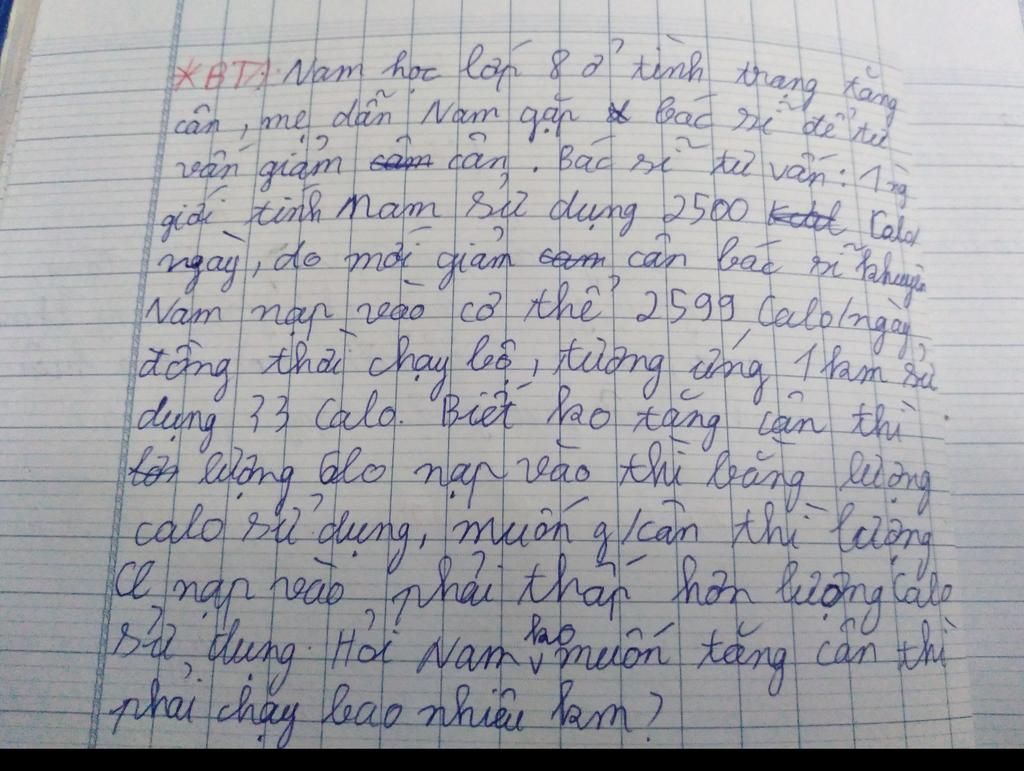 *BT: Nam học lớp 8 ở tình trạng tăng
cân, mẹ dẫn Nam gặp bác sĩ để tư
vấn giảm cân. Bác sĩ tư vấn: 1 ng
giới tính Nam sử dụng 2500 Calo/
ngày, do mới giảm cân bác sĩ khuyên
Nam nạp vào cơ thể 2599 Calo/ngày
đồng thời chạy bộ, tương ứng 1 km sử
dụng 33 Calo. Biết ko tăng cân thì
lượng Calo nạp vào thì bằng lượng
calo sử dụng, muốn g/cân thì lượng
Cl nạp vào phải thấp hơn lượng Calo
sử dụng. Hỏi Nam ko muốn tăng cân thì
phải chạy bao nhiêu km?